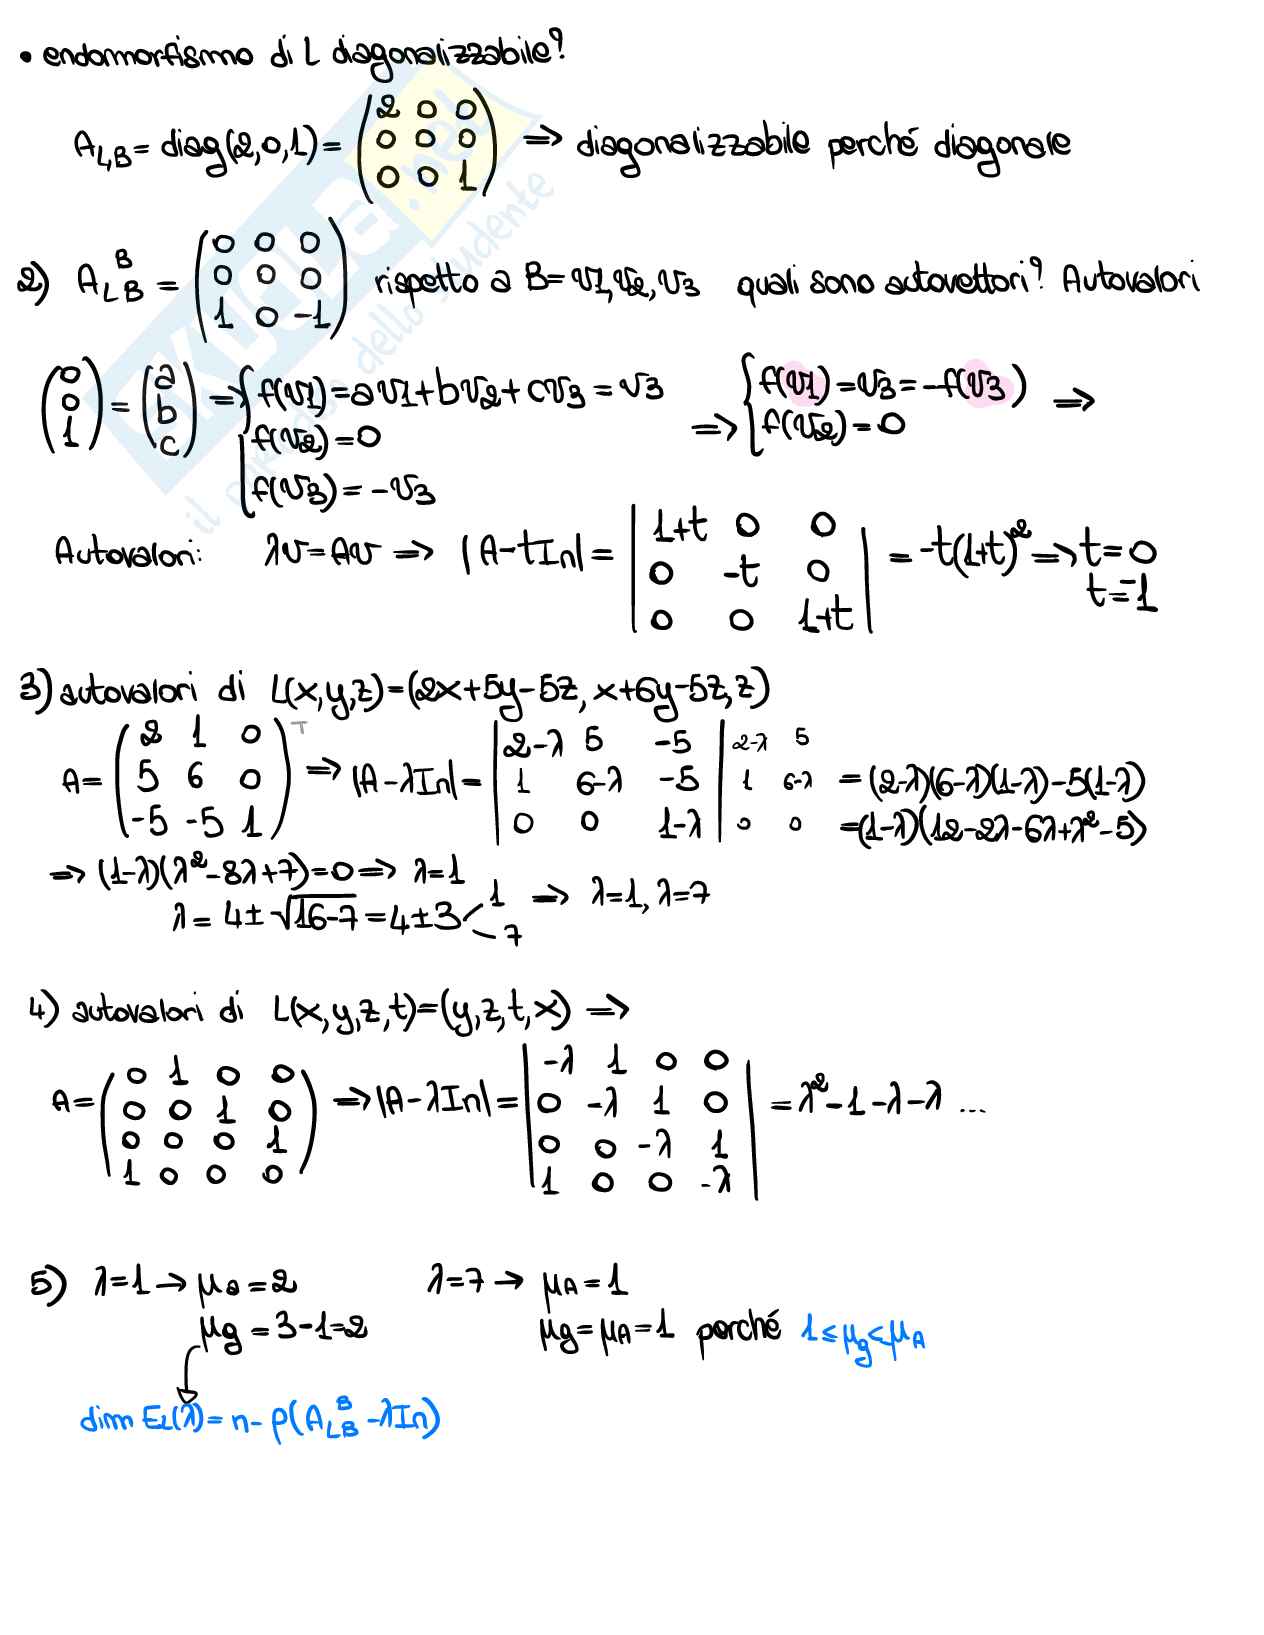 • endomorfismo di L diagonalizzabile?
A_{L,B} = diag(2,0,1) = \begin{pmatrix} 2 & 0 & 0 \\ 0 & 0 & 0 \\ 0 & 0 & 1 \end{pmatrix} ⇒ diagonalizzabile perché diagonale
2) A_{LB}^{B} = \begin{pmatrix} 0 & 0 & 0 \\ 0 & 0 & 0 \\ 1 & 0 & -1 \end{pmatrix} rispetto a B=v1,v2,v3 quali sono autovettori? Autovalori
\begin{pmatrix} 0 \\ 0 \\ 1 \end{pmatrix} = \begin{pmatrix} a \\ b \\ c \end{pmatrix} ⇒ { f(v1)=av1+bv2+cv3=v3 ⇒ { f(v1)=v3=-f(v3) ⇒
f(v2)=0 f(v2)=0
f(v3)=-v3
Autovalori: λv=Av ⇒ |A-tIn| = \begin{vmatrix} 1+t & 0 & 0 \\ 0 & -t & 0 \\ 0 & 0 & 1+t \end{vmatrix} = -t(1+t)^2 ⇒ t=0
t=-1
3) autovalori di L(x,y,z)=(2x+5y-5z, x+6y-5z, z)
A= \begin{pmatrix} 2 & 1 & 0 \\ 5 & 6 & 0 \\ -5 & -5 & 1 \end{pmatrix}^T ⇒ |A-λIn| = \begin{vmatrix} 2-λ & 5 & -5 \\ 1 & 6-λ & -5 \\ 0 & 0 & 1-λ \end{vmatrix} \begin{matrix} 2-λ & 5 \\ 1 & 6-λ \\ 0 & 0 \end{matrix} = (2-λ)(6-λ)(1-λ)-5(1-λ)
=(1-λ)(12-2λ-6λ+λ^2-5)
⇒ (1-λ)(λ^2-8λ+7)=0 ⇒ λ=1
λ = 4± √16-7 = 4±3 < 1 7 ⇒ λ=1, λ=7
4) autovalori di L(x,y,z,t)=(y,z,t,x) ⇒
A= \begin{pmatrix} 0 & 1 & 0 & 0 \\ 0 & 0 & 1 & 0 \\ 0 & 0 & 0 & 1 \\ 1 & 0 & 0 & 0 \end{pmatrix} ⇒ |A-λIn| = \begin{vmatrix} -λ & 1 & 0 & 0 \\ 0 & -λ & 1 & 0 \\ 0 & 0 & -λ & 1 \\ 1 & 0 & 0 & -λ \end{vmatrix} = λ^2-1-λ-λ ...
5) λ=1 → μa=2 λ=7 → μA=1
μg=3-1=2 μg=μA=1 perché 1≤μg<μA
dim EL(λ)=n-ρ(A_{LB}^{B}-λIn)